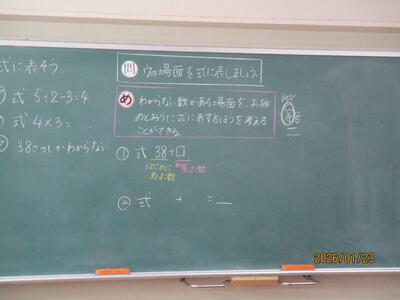 式に表そう
式 5+2-3=4
式 4×3=
38さつしかわからない
問 ウの場面を式に表しましょう。
め わからない数がある場面を、お話
のとおりに式に表す方ほうを考える
ことができる。
① 式 38+□
はじめに
あった数
② 式 + =
2026/01/23